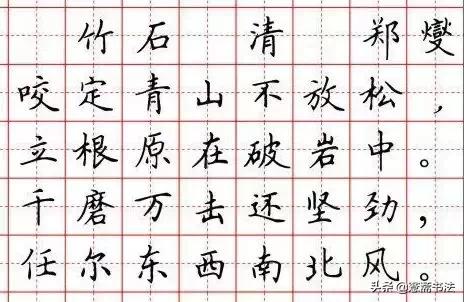 竹石 清 郑燮
咬定青山不放松，
立根原在破岩中。
千磨万击还坚劲，
任尔东西南北风。
头条@蹇斋书法